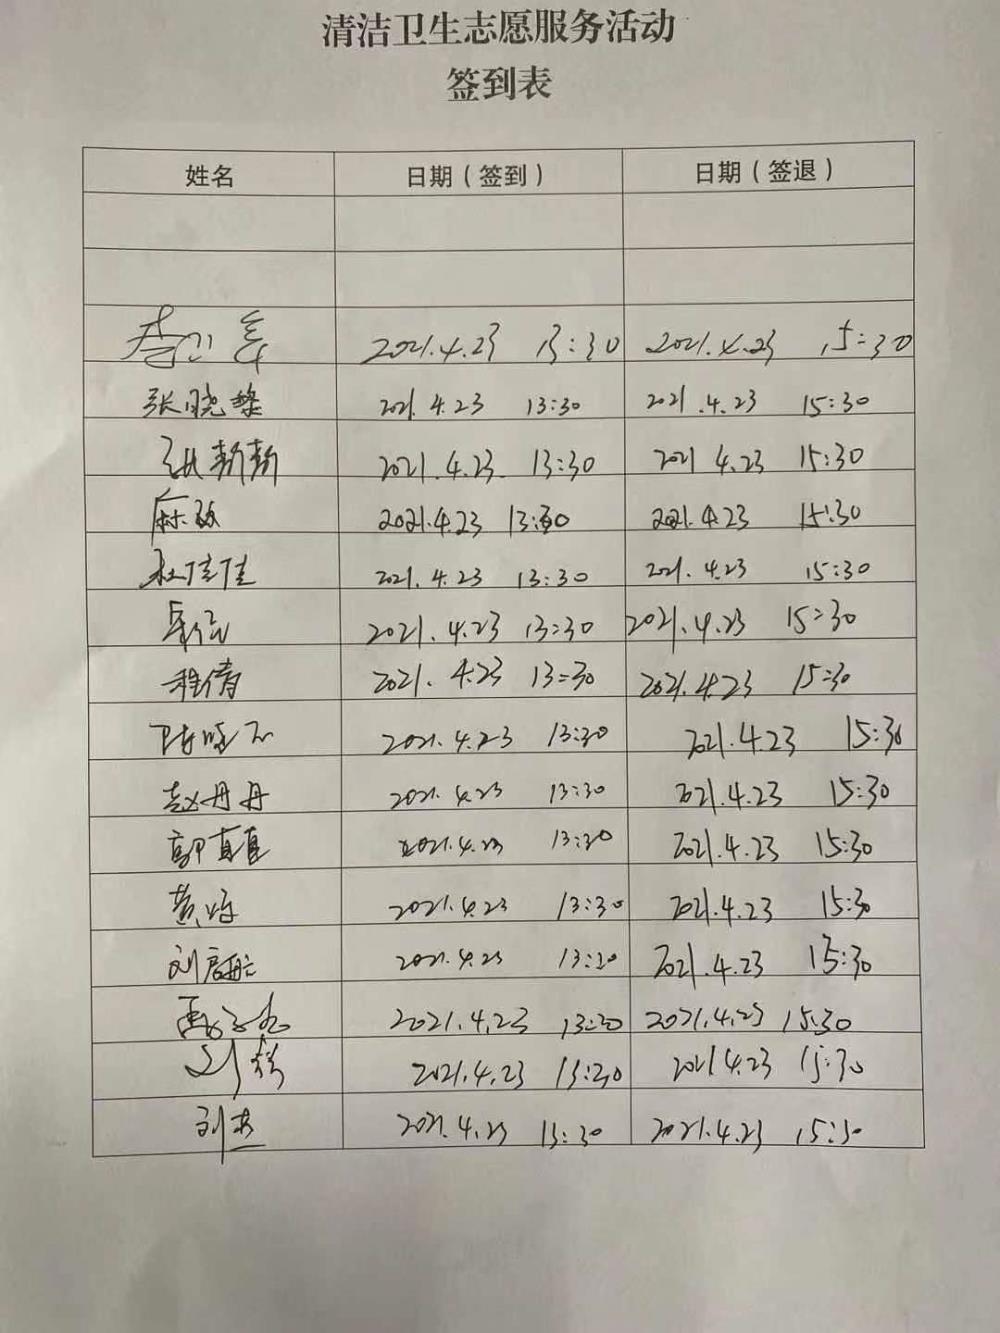 清洁卫生志愿服务活动
签到表
姓名 日期（签到） 日期（签退）
2021.4.23 13:30 2021.4.23 15:30
张晓 2021.4.23 13:30 2021.4.23 15:30
张新新 2021.4.23 13:30 2021.4.23 15:30
麻 2021.4.23 13:30 2021.4.23 15:30
杜佳佳 2021.4.23 13:30 2021.4.23 15:30
2021.4.23 13:30 2021.4.23 15:30
程倩 2021.4.23 13:30 2021.4.23 15:30
陈晓 2021.4.23 13:30 2021.4.23 15:30
赵丹丹 2021.4.23 13:30 2021.4.23 15:30
郭直直 2021.4.23 13:30 2021.4.23 15:30
黄 2021.4.23 13:30 2021.4.23 15:30
刘启航 2021.4.23 13:30 2021.4.23 15:30
2021.4.23 13:30 2021.4.23 15:30
刘 2021.4.23 13:30 2021.4.23 15:30
刘杰 2021.4.23 13:30 2021.4.23 15:30